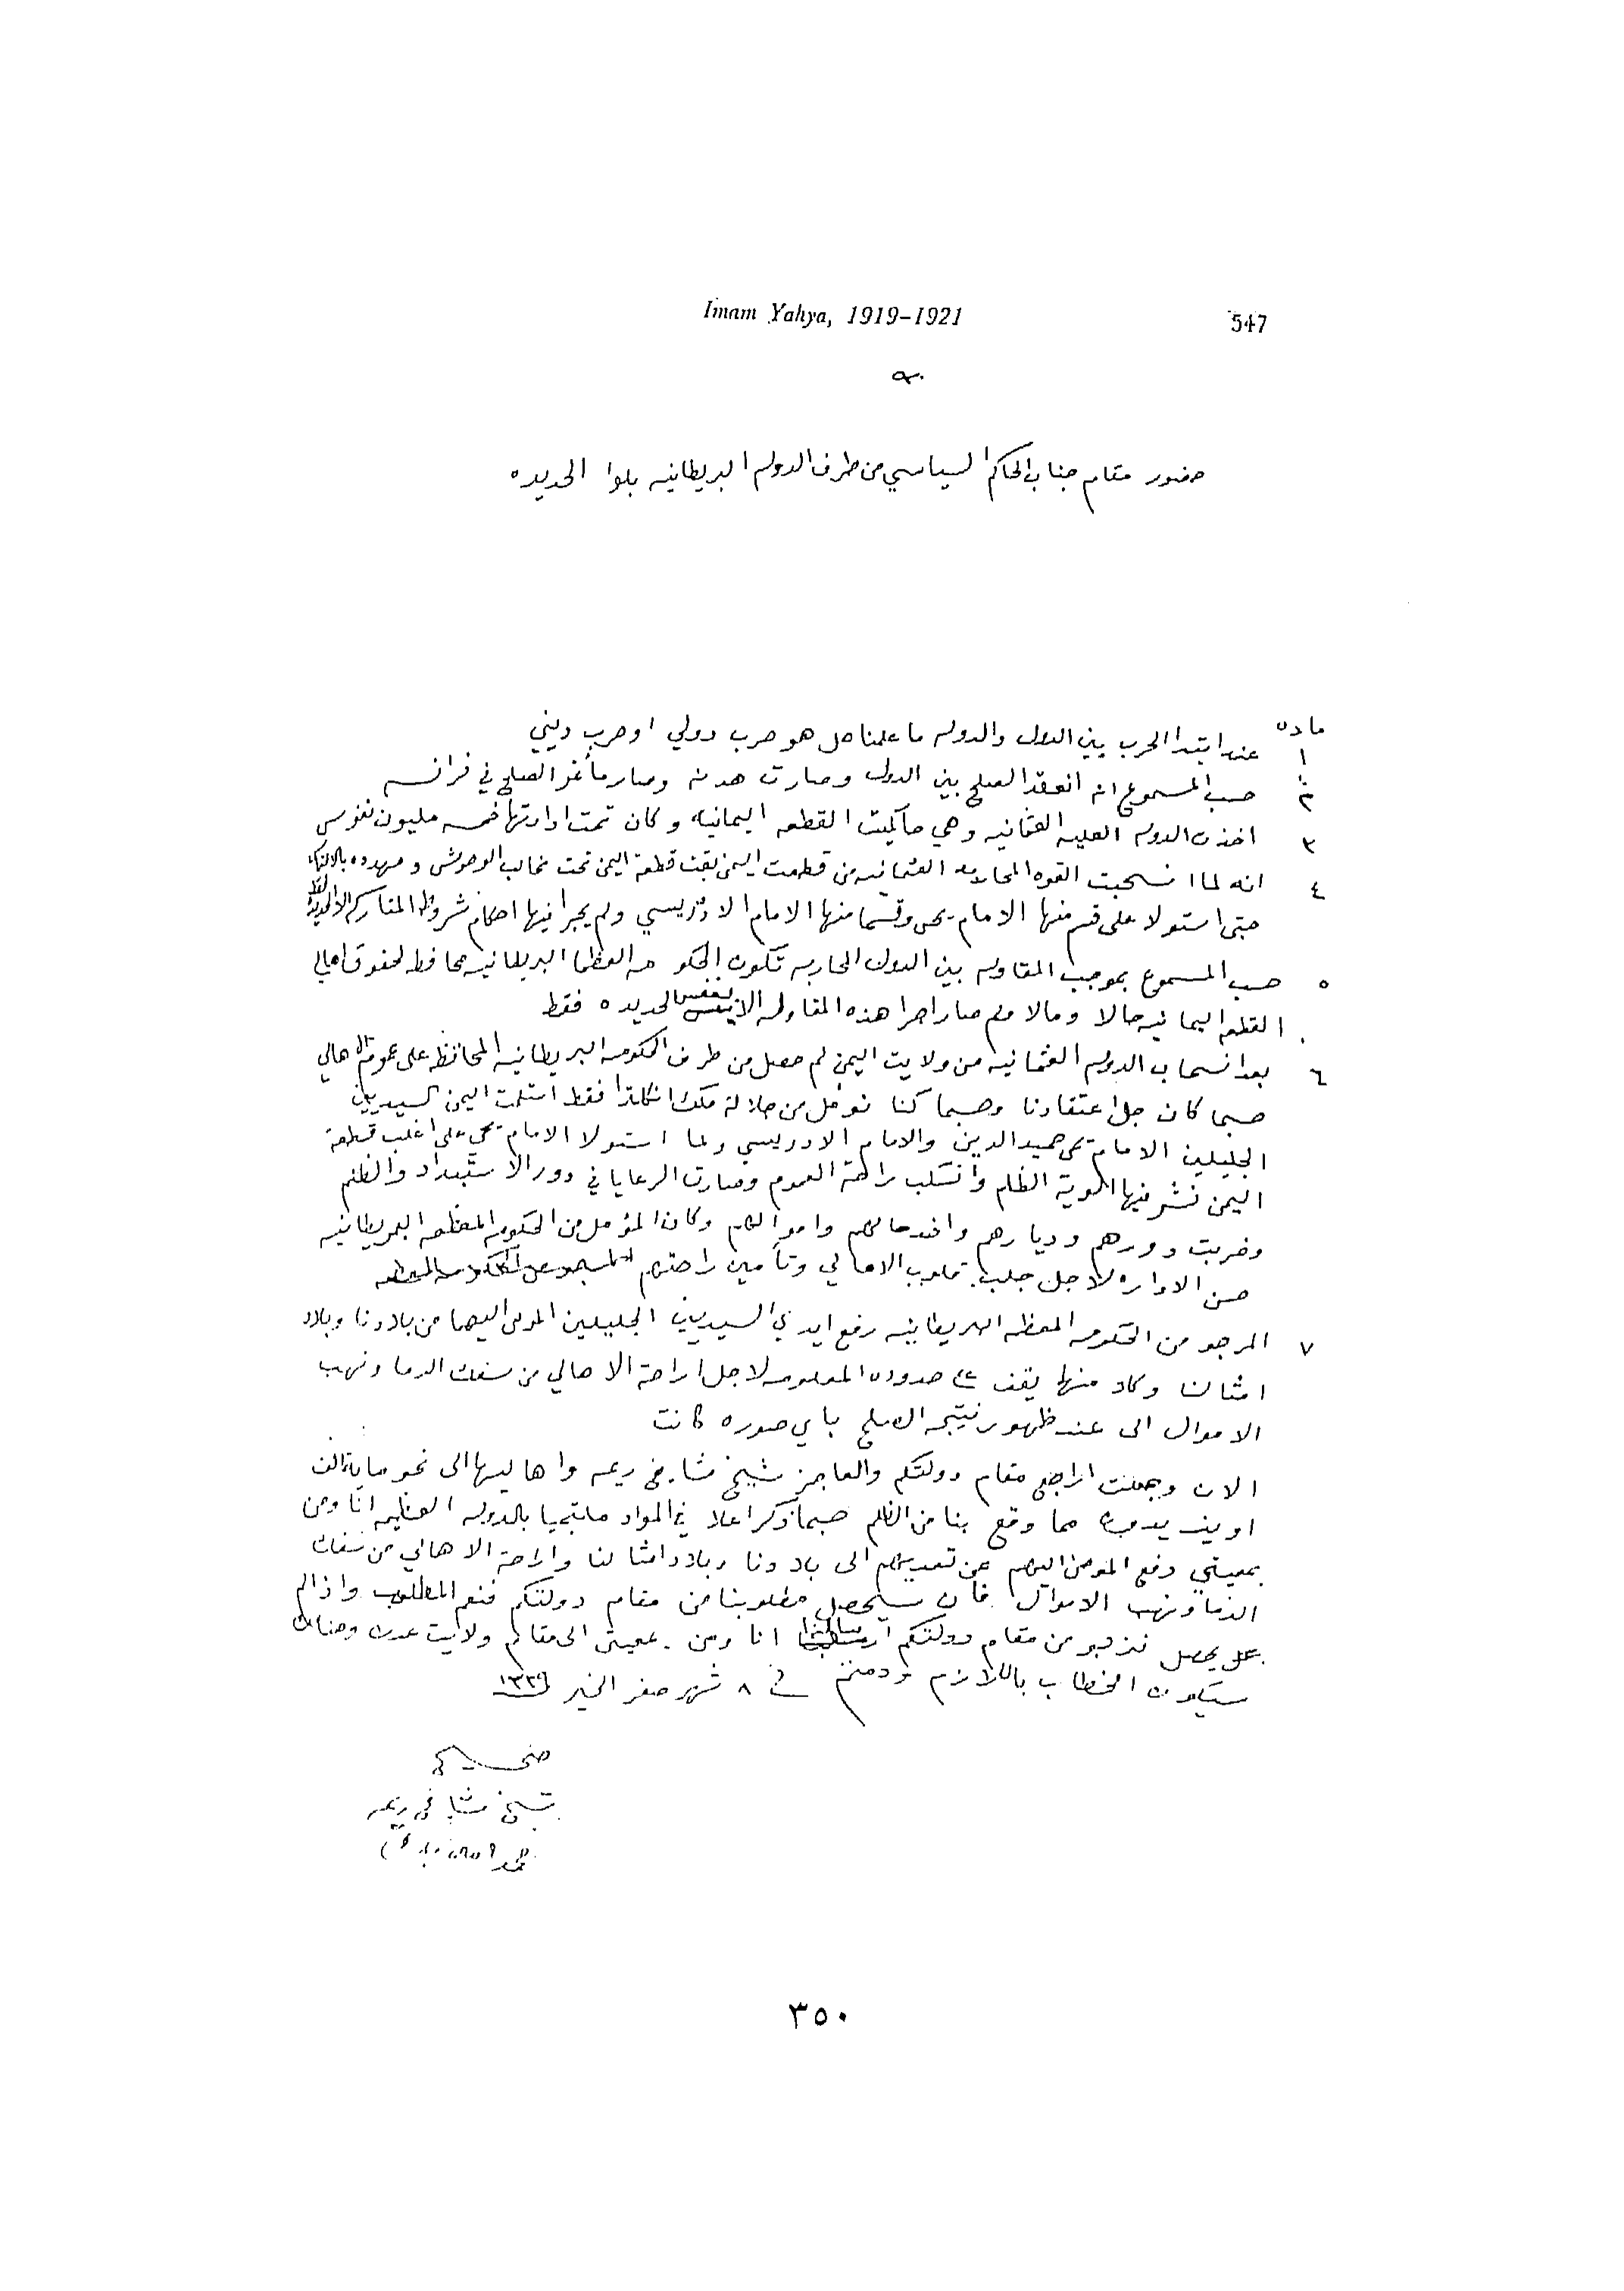 Imam Yahya, 1919–1921
547
حضور مقام جناب الحاكم السياسي من طرف الدوله البريطانيه بلوا الحديده
ماده
١ عند ابتدا الحرب بين الدول والدوله ما علمنا هل هو حرب دولي او حرب ديني
٢ حسب المسموع انه انعقد الصلح بين الدول وصارت هدنه وصار مأتمر الصلح في فرانسه
٣ اخذت الدوله العليه العثمانيه وهي حاكميت القطعه اليمانيه وكان تحت ادارتها خمسه مليون نفوس
٤ انه لما انسحبت القوه المحاربه العثمانيه من قطعت اليمن بقت قطعة اليمن تحت مخالب الوحوش ومهدده
حتى استولا على قسم منها الامام يحيى وقسما منها الامام الادريسي ولم يجرا فيها احكام شروط المتاركه الا
٥ حسب المسموع بموجب المقاوله بين الدول المحاربه تكون الحكومه العظما البريطانيه محافظه لحقوق اهالي
القطعه اليمانيه حالا ومالا ولم صار اجرا هذه المقاوله الا بنفس الحديده فقط
٦ بعد انسحاب الدوله العثمانيه من ولايت اليمن لم حصل من طرف الحكومه البريطانيه المحافظه على عموم الاهالي
حسبما كان جل اعتقادنا وحسبما كنا نوءمل من جلالة ملك انكلترا فقط استلمت اليمن السيديين
الجليلين الامام يحيى حميد الدين والامام الادريسي ولما استولا الامام يحيى على اغلب قطعة
اليمن نشر فيها الوية الظلم وانسلب راحة العموم وصارت الرعايا في دور الاستبداد والظلم
وخربت دورهم وديارهم واخذ حالهم واموالهم وكان المؤمل من الحكومه المعظمه البريطانيه
حسن الاداره لاجل جلب قلوب الاهالي وتأمين راحتهم
٧ المرجو من الحكومه المعظمه البريطانيه رفع ايدي السيديين الجليلين المومى اليهما من بلادنا وبلاد
امثالنا وكلا منها يقف على حدوده المعلومه لاجل اراحة الاهالي من سفك الدما ونهب
الاموال الى عند ظهور نتيجه الصلح باي صوره كانت
الان وجهت اراجع مقام دولتكم والعاجز شيخ مشايخ ريمه واهاليها الى نحو ماية الف
او يزيدون مما وقع بنا من الظلم حسبما ذكر اعلا في المواد ملتجيا بالدوله العظيمه انا ومن
بمعيتي دفع المومى اليهم عن تعديهم الى بلادنا وبلاد امثالنا واراحة الاهالي من سفك
الدما ونهب الاموال فان سيحصل مطلوبنا من مقام دولتكم فنعم المطلوب واذا لم
يحصل تدبير من مقام دولتكم انا ومن بمعيتي الى مقام ولايت عدن وهناك
سيكون الخطاب باللازم ودمتم في ٨ شهر صفر الخير ١٣٣٩
شيخ مشايخ ريمه
٣٥٠